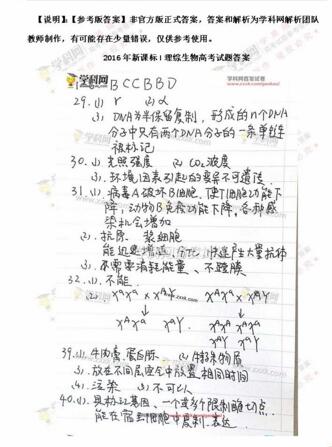 【说明】:【参考版答案】非官方版正式答案，答案和解析为学科网解析团队
教师制作，有可能存在少量错误，仅供参考使用。
2016年新课标I理综生物高考试题答案
学科网
1-6 BCCBBD
29.(1) γ (2) α
(3) DNA为半保留复制，形成的n个DNA
分子中只有两个DNA分子的一条单链
被标记
30.(1) 光照强度 (2) CO₂浓度
(3) 环境因素引起的变异不可遗传
31.(1) 病毒A破坏B细胞、使T细胞功能下
降，动物B免疫功能下降，各种感
染机会增加
(2) 抗原 浆细胞
能迅速增殖、分化，快速产生大量抗体
(3) 不需要消耗能量、不跨膜
32.(1) 不能
(2) XᵃXᵃ × XᴬY XᴬXᵃ × XᴬY
↓ ↓
XᴬXᵃ XᵃY XᴬXᴬ XᴬXᵃ
XᴬY XᵃY
39.(1) 牛肉膏、蛋白胨 (2) 特殊物质
(3) 放在不同层空中放置相同时间
(4) 污染 (5) 不可以
40.(1) 具标记基因、一个或多个限制酶切点、
能在宿主细胞中复制、表达